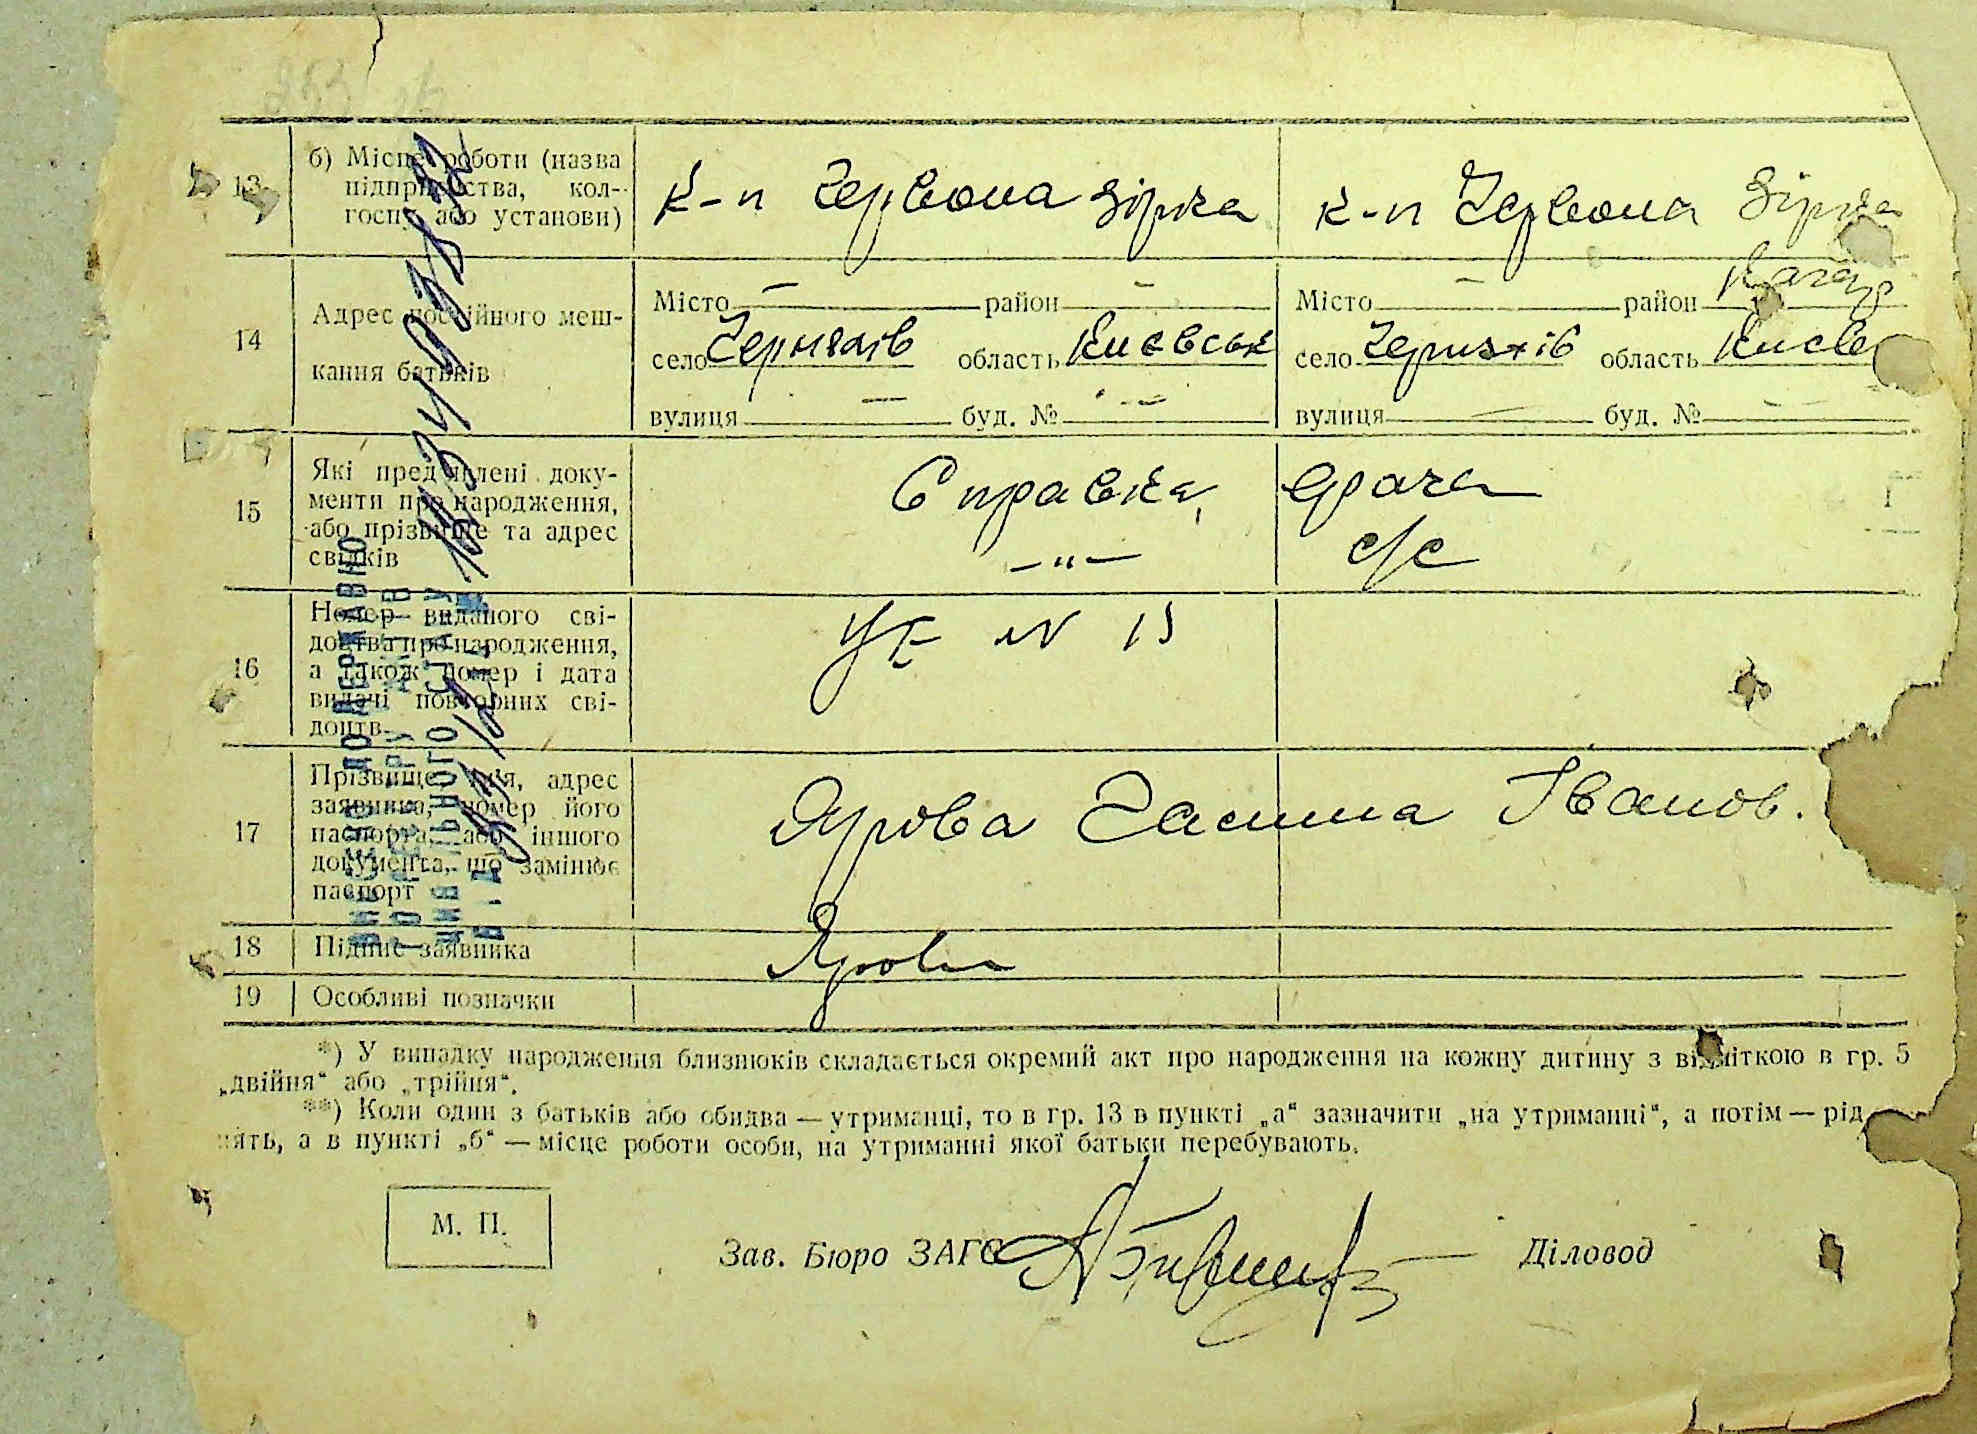 13 б) Місце роботи (назва підприємства, кол-
госпу або установи)
к-п Червона Зірка
к-п Червона Зірка
14 Адрес постійного меш-
кання батьків
Місто — район —
село Черняхів область Києвськ
вулиця — буд. № —
Місто — район Кага
село Черняхів область Києв
вулиця — буд. № —
15 Які пред'явлені доку-
менти про народження,
або прізвище та адрес
свідків
Справка врача
—"— с/с
16 Номер виданого сві-
доцтва про народження,
а також номер і дата
видачі повторних сві-
доцтв
№ 13
17 Прізвище, ім'я, адрес
заявника, номер його
паспорта, або іншого
документа, що замінює
паспорт
Ярова Галина Іванов.
18 Підпис заявника
Ярова
19 Особливі позначки
*) У випадку народження близнюків складається окремий акт про народження на кожну дитину з відміткою в гр. 5
„двійня“ або „трійня“.
**) Коли один з батьків або обидва — утриманці, то в гр. 13 в пункті „а“ зазначити „на утриманні“, а потім — рід
нять, а в пункті „б“ — місце роботи особи, на утриманні якої батьки перебувають.
М. П.
Зав. Бюро ЗАГС
Діловод
ВНЕСЕНО ДО ДЕРЖАВНО
ГО РЕЄСТРУ АКТІВ
ЦИВІЛЬНОГО СТАНУ